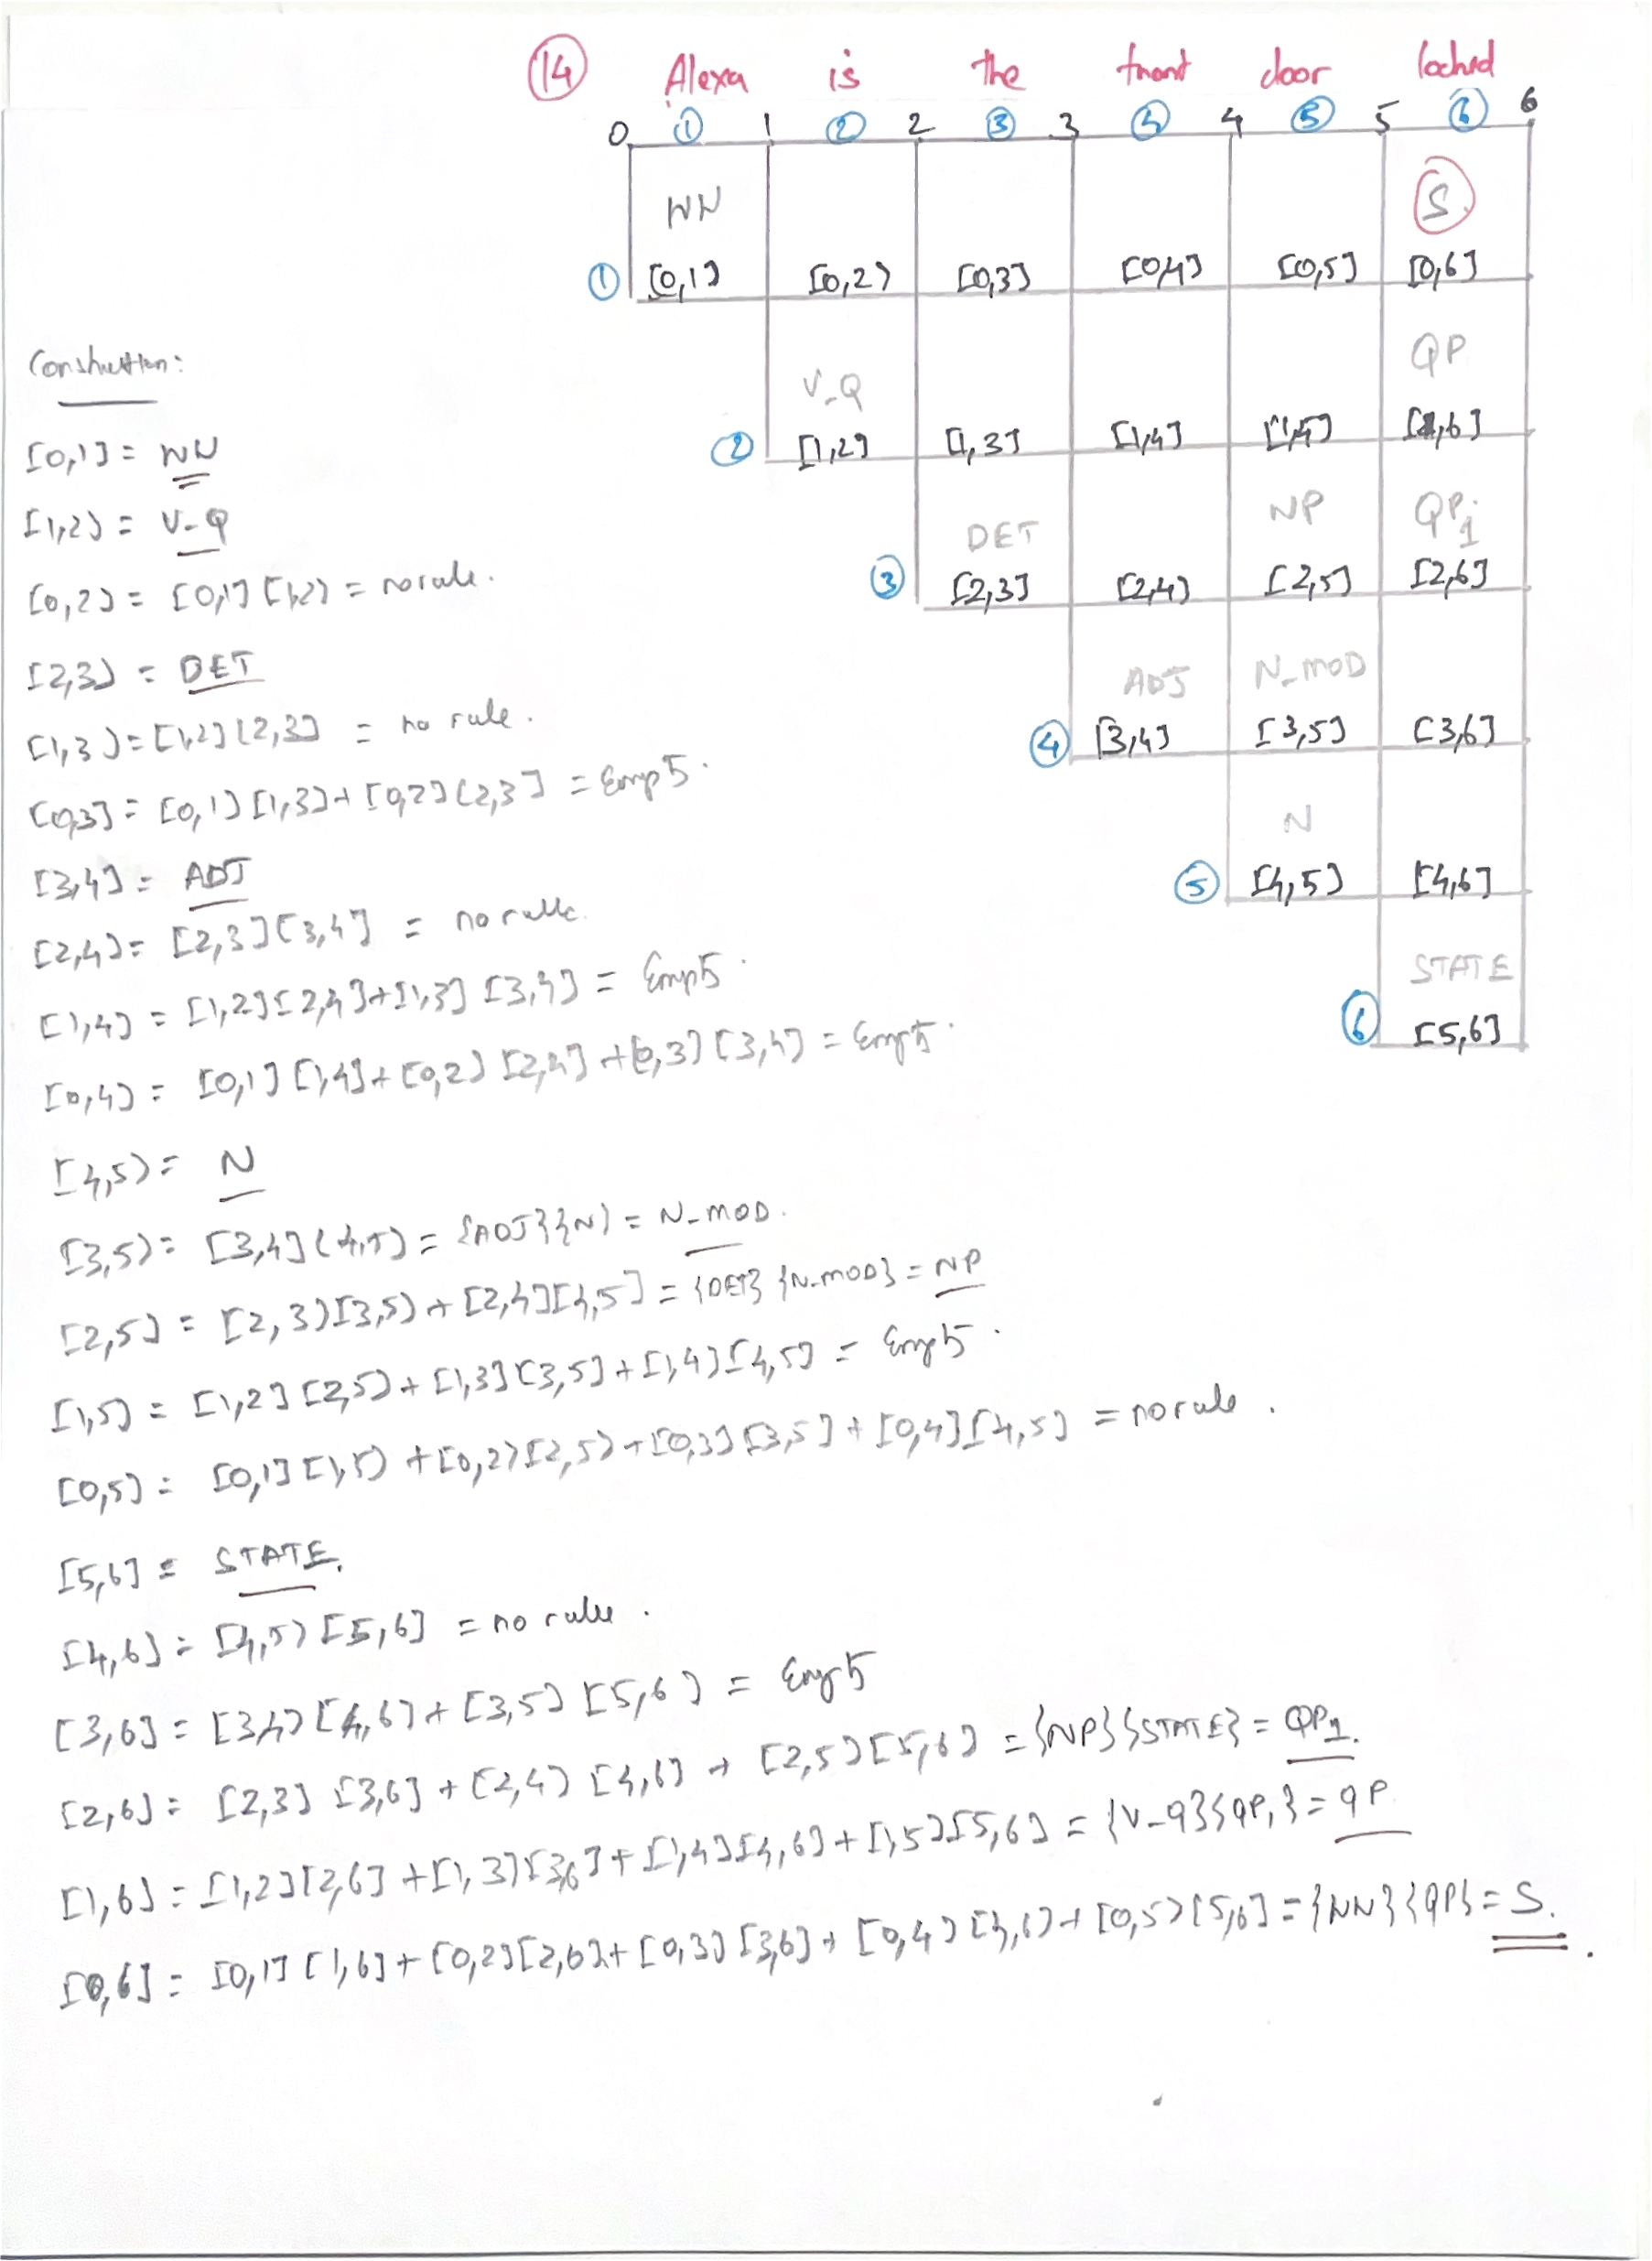 14 Alexa is the front door locked
0 ① 1 ② 2 ③ 3 ④ 4 ⑤ 5 ⑥ 6
WN S
① [0,1] [0,2] [0,3] [0,4] [0,5] [0,6]
V_Q QP
② [1,2] [1,3] [1,4] [1,5] [1,6]
DET NP QP1
③ [2,3] [2,4] [2,5] [2,6]
ADJ N_MOD
④ [3,4] [3,5] [3,6]
N
⑤ [4,5] [4,6]
STATE
⑥ [5,6]
Construction:
[0,1] = WN
[1,2] = V_Q
[0,2] = [0,1] [1,2] = no rule.
[2,3] = DET
[1,3] = [1,2] [2,3] = no rule.
[0,3] = [0,1] [1,3] + [0,2] [2,3] = Empty.
[3,4] = ADJ
[2,4] = [2,3] [3,4] = no rule.
[1,4] = [1,2] [2,4] + [1,3] [3,4] = Empty.
[0,4] = [0,1] [1,4] + [0,2] [2,4] + [0,3] [3,4] = Empty.
[4,5] = N
[3,5] = [3,4] [4,5] = {ADJ} {N} = N_MOD.
[2,5] = [2,3] [3,5] + [2,4] [4,5] = {DET} {N_MOD} = NP
[1,5] = [1,2] [2,5] + [1,3] [3,5] + [1,4] [4,5] = Empty.
[0,5] = [0,1] [1,5] + [0,2] [2,5] + [0,3] [3,5] + [0,4] [4,5] = no rule.
[5,6] = STATE.
[4,6] = [4,5] [5,6] = no rule.
[3,6] = [3,4] [4,6] + [3,5] [5,6] = Empty
[2,6] = [2,3] [3,6] + [2,4] [4,6] + [2,5] [5,6] = {NP} {STATE} = QP1.
[1,6] = [1,2] [2,6] + [1,3] [3,6] + [1,4] [4,6] + [1,5] [5,6] = {V_Q} {QP1} = QP.
[0,6] = [0,1] [1,6] + [0,2] [2,6] + [0,3] [3,6] + [0,4] [4,6] + [0,5] [5,6] = {WN} {QP} = S.